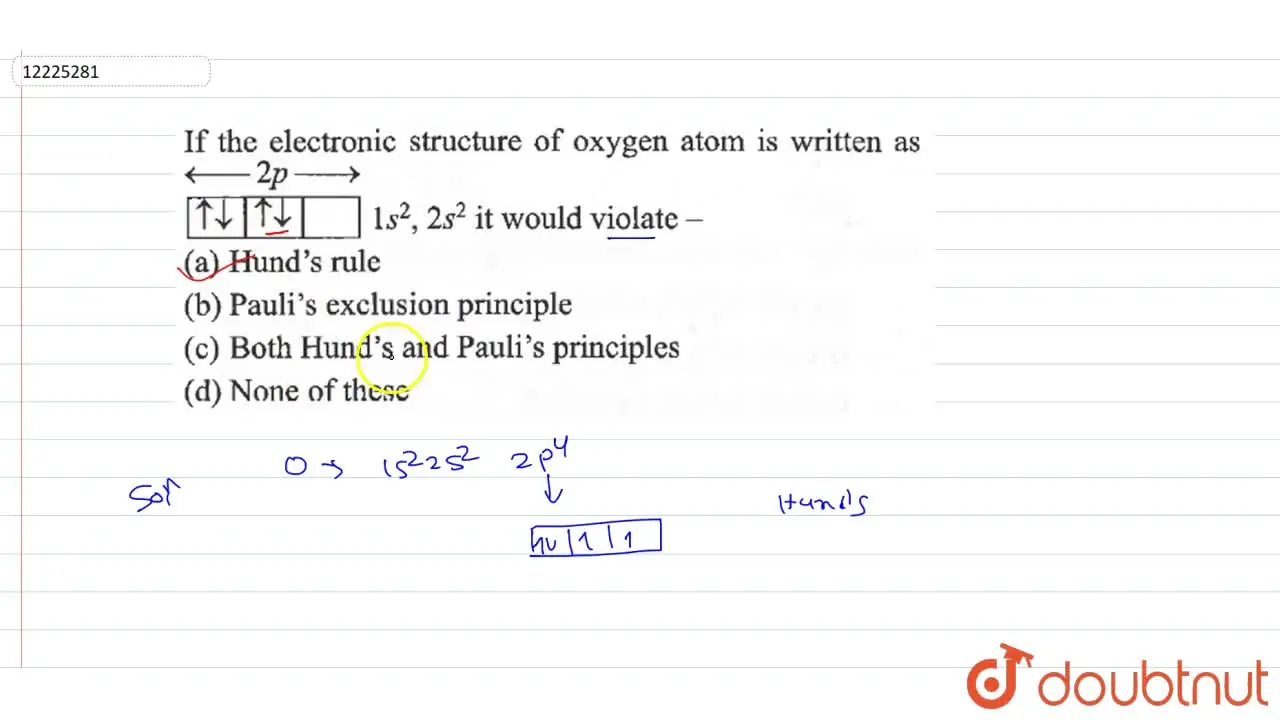 12225281
If the electronic structure of oxygen atom is written as
←— 2p —→
↑↓ ↑↓ 1s², 2s² it would violate –
(a) Hund's rule
(b) Pauli's exclusion principle
(c) Both Hund's and Pauli's principles
(d) None of these
O → 1s² 2s² 2p⁴
Solⁿ
Hund's
↓
↑↓ 1 1
doubtnut